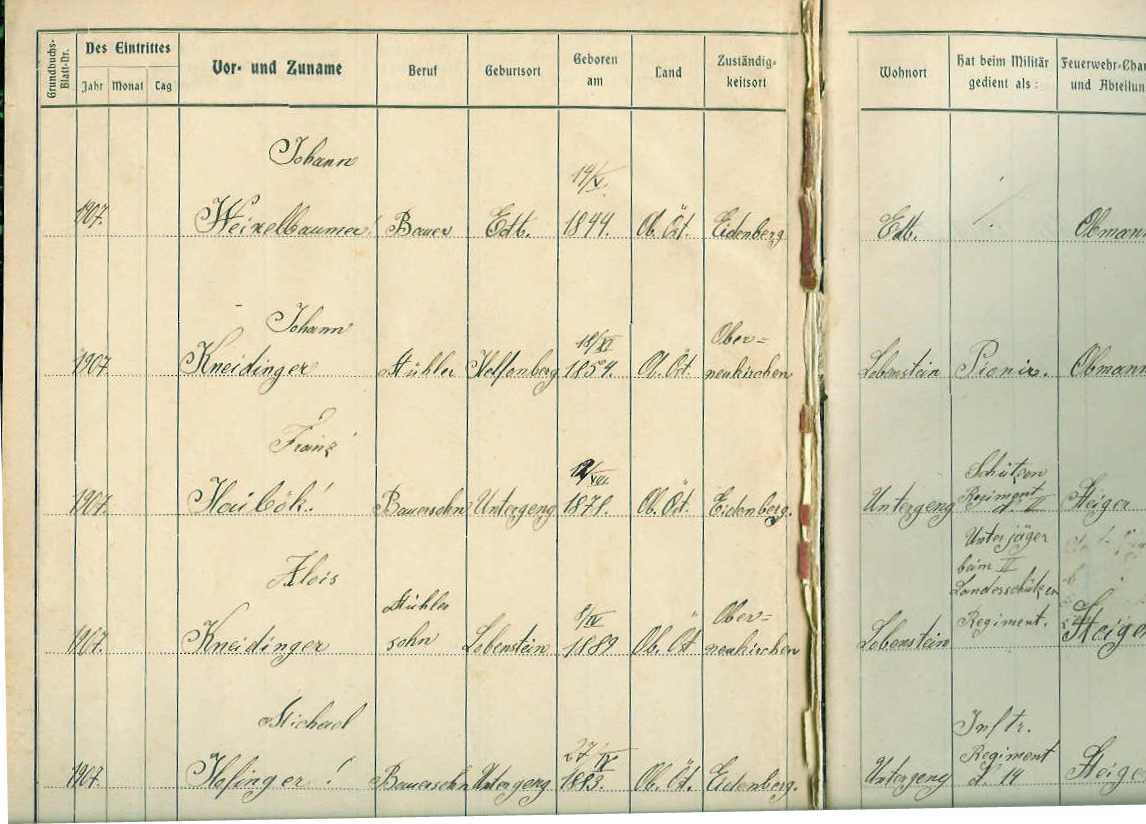 Grundbuchs-Blatt-Nr.
Des Eintrittes
Jahr Monat Tag
Vor- und Zuname
Beruf
Geburtsort
Geboren am
Land
Zuständig-
keitsort
Wohnort
Hat beim Militär
gedient als:
Feuerwehr-Char
und Abteilun
Johann
14/V.
1907. Weixelbaumer! Bauer Edt. 1844. Ob. Öst. Eidenberg Edt. /. Obmann
Johann
18/XI Ober=
1907 Kneidinger Mühler Helfenberg 1854. Ob. Öst. neukirchen Lobenstein Pionir. Obmann
Franz
Schützen
1907. Haibök! Bauersohn Untergeng 1871. Ob. Öst. Eidenberg. Untergeng Regiment d. II Steiger
Alois
Unterjäger
beim II
Landesschützen
Mühler Ober= Regiment.
1907. Kneidinger sohn Lobenstein 1889. Ob. Öst neukirchen Lobenstein Steiger
Michael
Inftr.
27/IV Regiment
1907. Hofinger! Bauersohn Untergeng 1883. Ob. Öst. Eidenberg. Untergeng d. 14 Steige